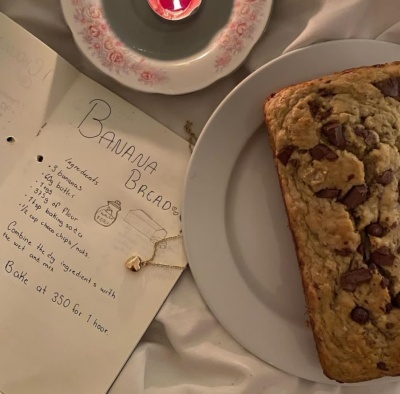 BANANA
BREAD
Ingredients
• 3 bananas
butter
• 1 egg
of flour
• 1 tsp baking soda
• 1/2 cup choco chips/nuts
Combine the dry ingredients with
the wet and mix
Bake at 350 for 1 hour.